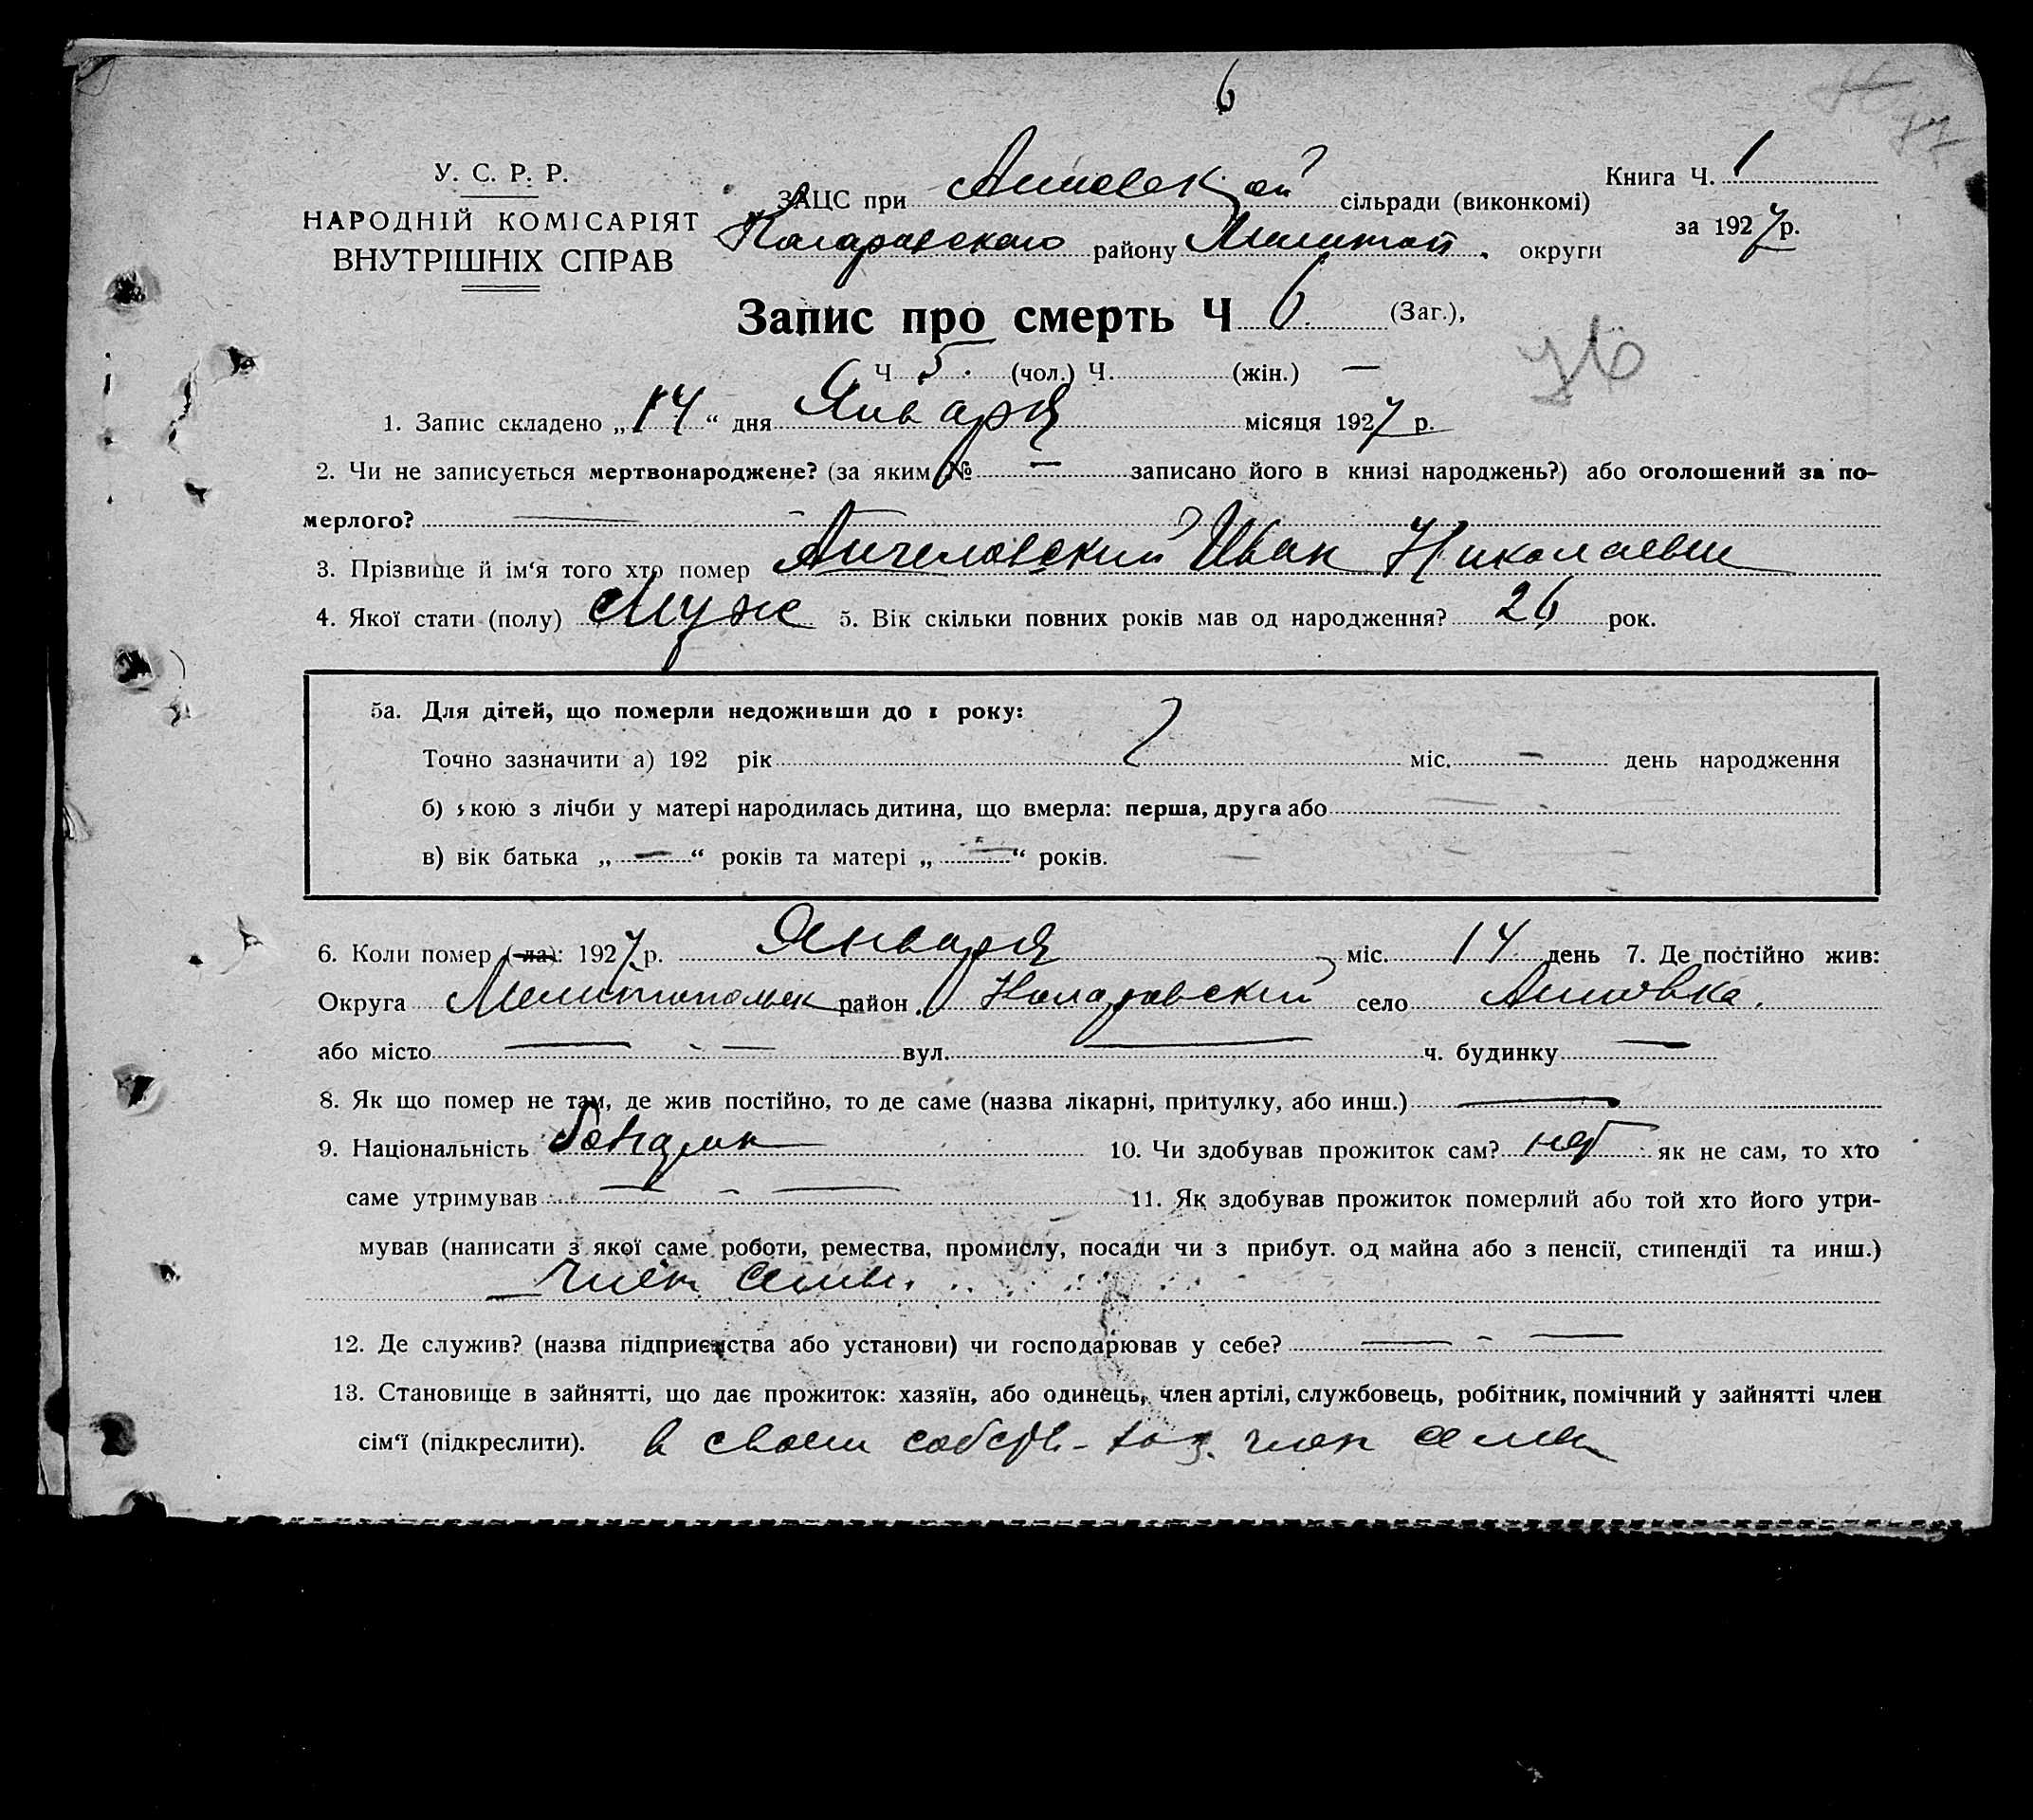 6
У. С. Р. Р.
НАРОДНІЙ КОМІСАРІЯТ
ВНУТРІШНІХ СПРАВ
ЗАЦС при сільради (виконкомі)
району Мелитоп. округи
Книга Ч. 1
за 1927 р.
Запис про смерть Ч 6 (Заг.),
Ч 5. (чол.) Ч. (жін.) —
1. Запис складено „14“ дня Января місяця 1927 р.
2. Чи не записується мертвонароджене? (за яким № — записано його в книзі народжень?) або оголошений за по-
мерлого? —
3. Прізвище й ім‘я того хто помер Иван Николаевич
4. Якої стати (полу) Муж 5. Вік скільки повних років мав од народження? 26 рок.
5а. Для дітей, що померли недоживши до 1 року:
Точно зазначити а) 192 рік міс. — день народження
б) якою з лічби у матері народилась дитина, що вмерла: перша, друга або
в) вік батька „—“ років та матері „—“ років.
6. Коли помер (-ла): 1927 р. Января міс. 14 день 7. Де постійно жив:
Округа Мелитопольск район село
або місто — — вул. — ч. будинку —
8. Як що помер не там, де жив постійно, то де саме (назва лікарні, притулку, або инш.) —
9. Національність 10. Чи здобував прожиток сам? нет як не сам, то хто
саме утримував — - — 11. Як здобував прожиток померлий або той хто його утри-
мував (написати з якої саме роботи, ремества, промислу, посади чи з прибут. од майна або з пенсії, стипендії та инш.)
член семьи.
12. Де служив? (назва підприємства або установи) чи господарював у себе? — - —
13. Становище в зайнятті, що дає прожиток: хазяїн, або одинець, член артілі, службовець, робітник, помічний у зайнятті член
сім‘ї (підкреслити). в своем собств. хоз. член семьи